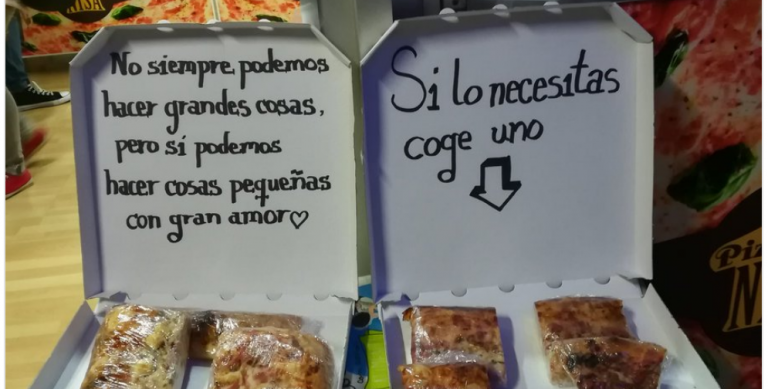 NISA
No siempre podemos
hacer grandes cosas,
pero sí podemos
hacer cosas pequeñas
con gran amor♡
Si lo necesitas
coge uno